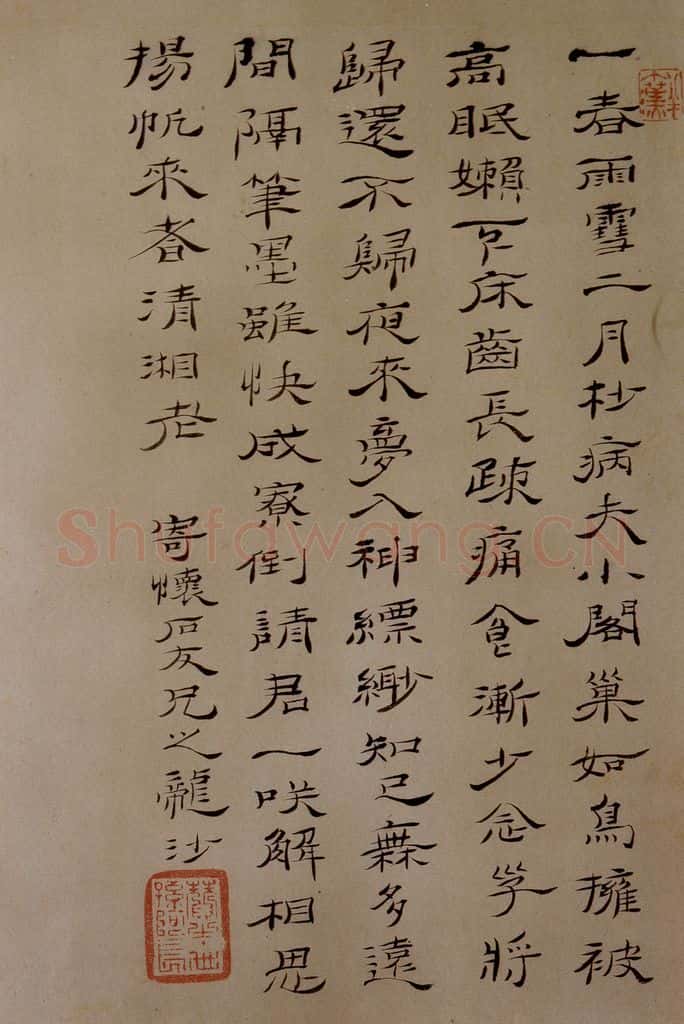 一春雨雪二月杪病夫小閣巢如鳥擁被
高眠嬾下床齒長疎痛食漸少念孥將
歸還不歸夜來夢入神縹緲知己無多遠
間隔筆墨雖快成寮倒請君一咲解相思
揚帆來看清湘老
寄懷石友兄之龍沙
Shufawang.CN